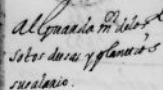 Al guarda mr de los
sotos duças y plantio s
su salario.